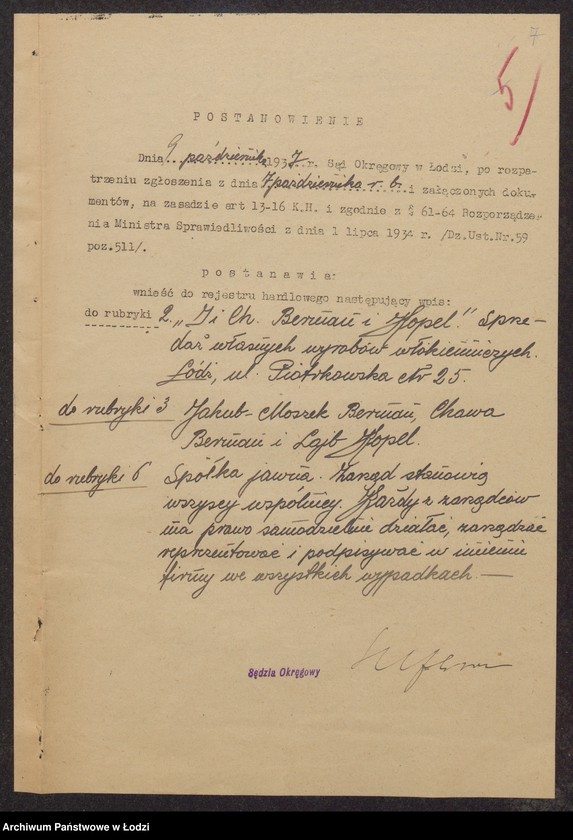 7
5/
POSTANOWIENIE
Dnia 9 października 1937 r. Sąd Okręgowy w Łodzi, po rozpa-
trzeniu zgłoszenia z dnia 7 października r. b. i załączonych doku-
mentów, na zasadzie art 13-16 K.H. i zgodnie z § 61-64 Rozporządze-
nia Ministra Sprawiedliwości z dnia 1 lipca 1934 r. /Dz.Ust.Nr.59
poz.511/.
postanawia:
wnieść do rejestru handlowego następujący wpis:
do rubryki 2. „J i Ch. Berman i Hopel." Sprze-
daż własnych wyrobów włókienniczych.
Łódź, ul. Piotrkowska Nr 25.
do rubryki 3 Jakub-Moszek Berman, Chawa
Berman i Lajb Hopel.
do rubryki 6 Spółka jawna. Zarząd stanowią
wszyscy wspólnicy. Każdy z zarządców
ma prawo samodzielnie działać, zarządzać
reprezentować i podpisywać w imieniu
firmy we wszystkich wypadkach —
Sędzia Okręgowy
Archiwum Państwowe w Łodzi